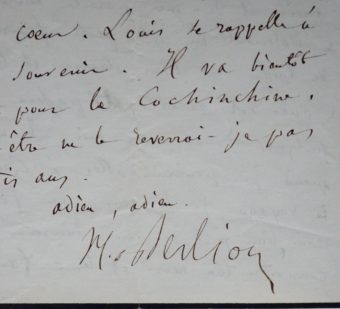 coeur. Louis se rappelle à
souvenir. Il va bientôt
pour la Cochinchine.
être ne le reverrai-je pas
is ans.
adieu, adieu.
H. Berlioz